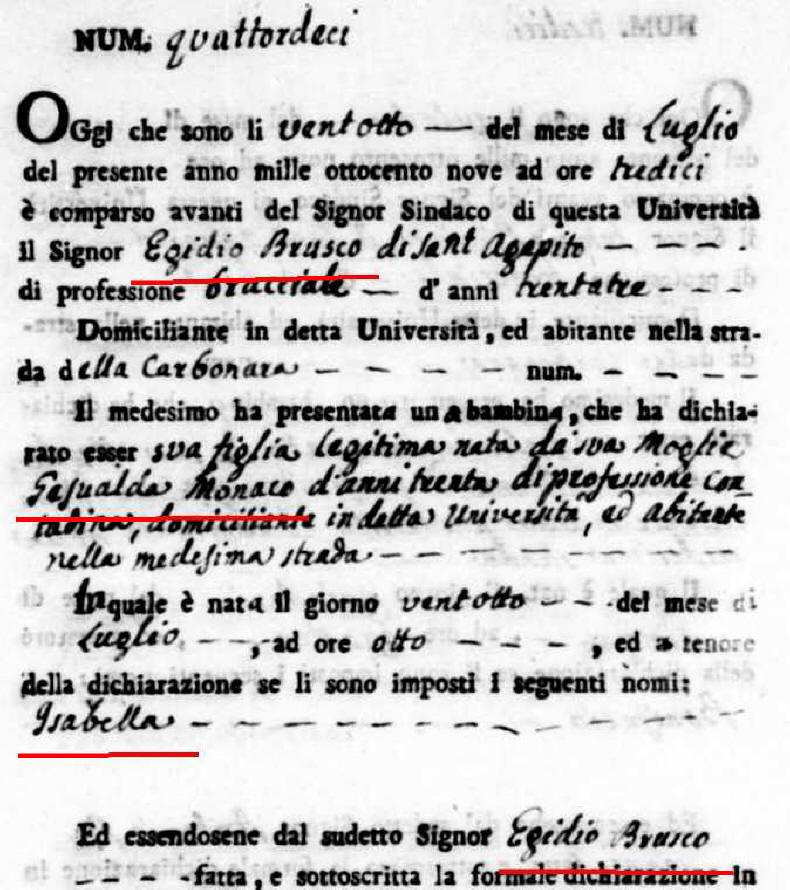 NUM. quattordeci
OGgi che sono li ventotto — del mese di Luglio
del presente anno mille ottocento nove ad ore tredici
è comparso avanti del Signor Sindaco di questa Università
il Signor Egidio Brusco di Sant Agapito — — — -
di professione bracciale — d' anni trentatre - - -
Domiciliante in detta Università, ed abitante nella stra-
da della Carbonara — — — — num. — — — —
Il medesimo ha presentata una bambina, che ha dichia-
rato esser sua figlia legitima nata da sua Moglie
Gesualda Monaco d'anni trenta di professione con
tadina, domiciliante in detta Università, ed abitante
nella medesima strada — — — — — — —
La quale è nata il giorno ventotto — - - del mese di
Luglio - — —, ad ore otto — — — — , ed a tenore
della dichiarazione se li sono imposti i seguenti nomi:
Isabella — — — — — — — — — — —
Ed essendosene dal sudetto Signor Egidio Brusco
— — — - fatta, e sottoscritta la formale dichiarazione in